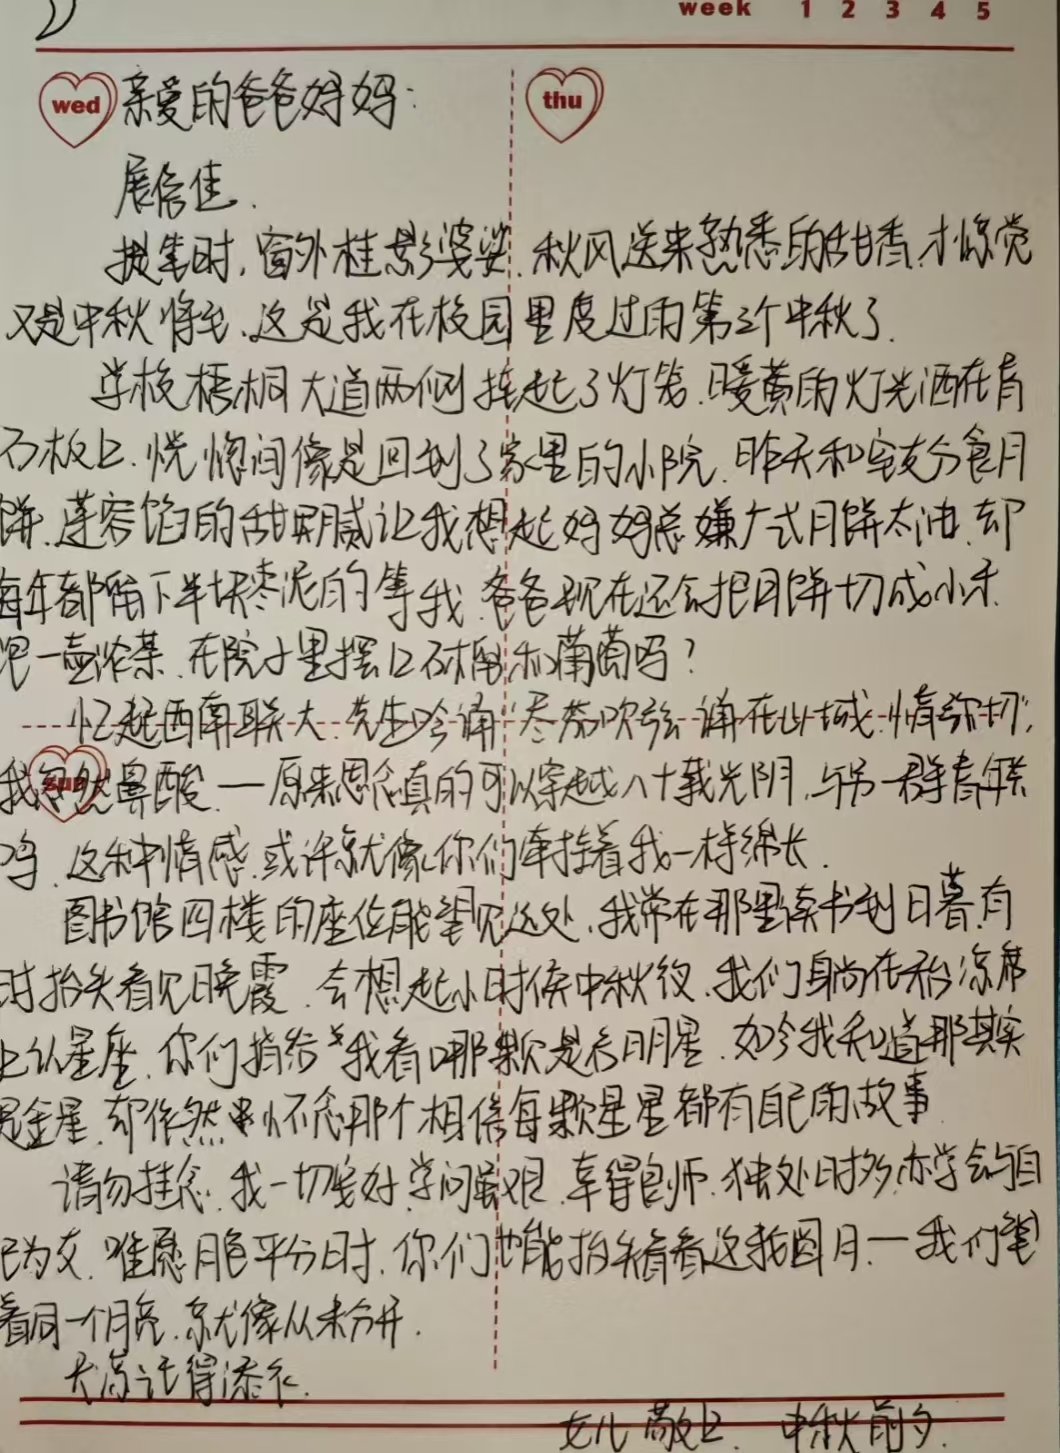 week 1 2 3 4 5
wed 亲爱的爸爸妈妈: thu
展信佳.
提笔时,窗外桂影婆娑,秋风送来熟悉的甜香,才惊觉
又是中秋将至,这是我在校园里度过的第三个中秋了.
学校梧桐大道两侧挂起了灯笼,暖黄的灯光洒在青
石板上,恍惚间像是回到了家里的小院,昨天和室友分食月
饼,莲蓉馅的甜腻让我想起妈妈总嫌广式月饼太油,却
每年都留下半块枣泥的等我.爸爸现在还会把月饼切成小米
泡一壶浓茶,在院子里摆上石榴和葡萄吗?
忆起西南联大先生吟诵"尽茄吹弦诵在山城,情弥切",
我突然鼻酸.—原来思念真的可以穿越八十载光阴,与另一群青年共
鸣.这种情感,或许就像你们牵挂着我一样绵长.
sun
图书馆四楼的座位能望见远处,我常在那里读书到日暮,有
时抬头看见晚霞,会想起小时候中秋夜,我们躺在凉席
上认星座,你们指给我看哪颗是长明星,如今我知道那其实
是金星,却依然怀念那个相信每颗星星都有自己的故事
请勿挂念,我一切安好,学问虽艰,幸得良师,独处时多,亦学会与自
己为友,唯愿月色平分时,你们也能抬头看看这轮圆月—我们望
着同一个月亮,就像从未分开.
天凉记得添衣.
女儿 敬上. 中秋前夕.